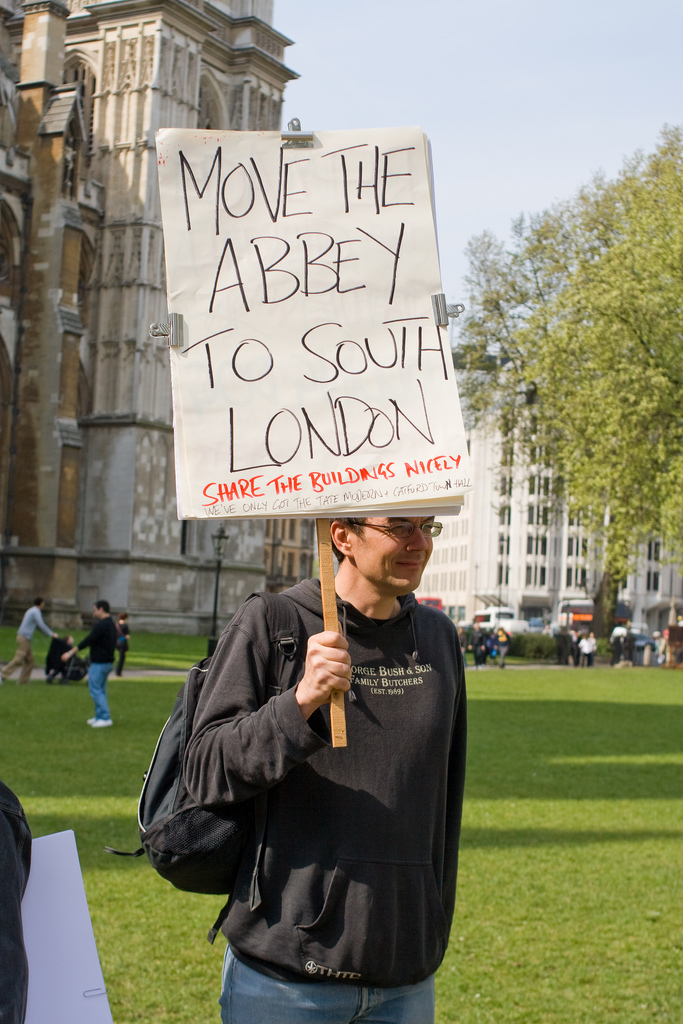 MOVE THE
ABBEY
TO SOUTH
LONDON
SHARE THE BUILDINGS NICELY
WE'VE ONLY GOT THE TATE MODERN + CATFORD TOWN HALL
ORGE BUSH & SON
FAMILY BUTCHERS
(EST. 1989)
THTC